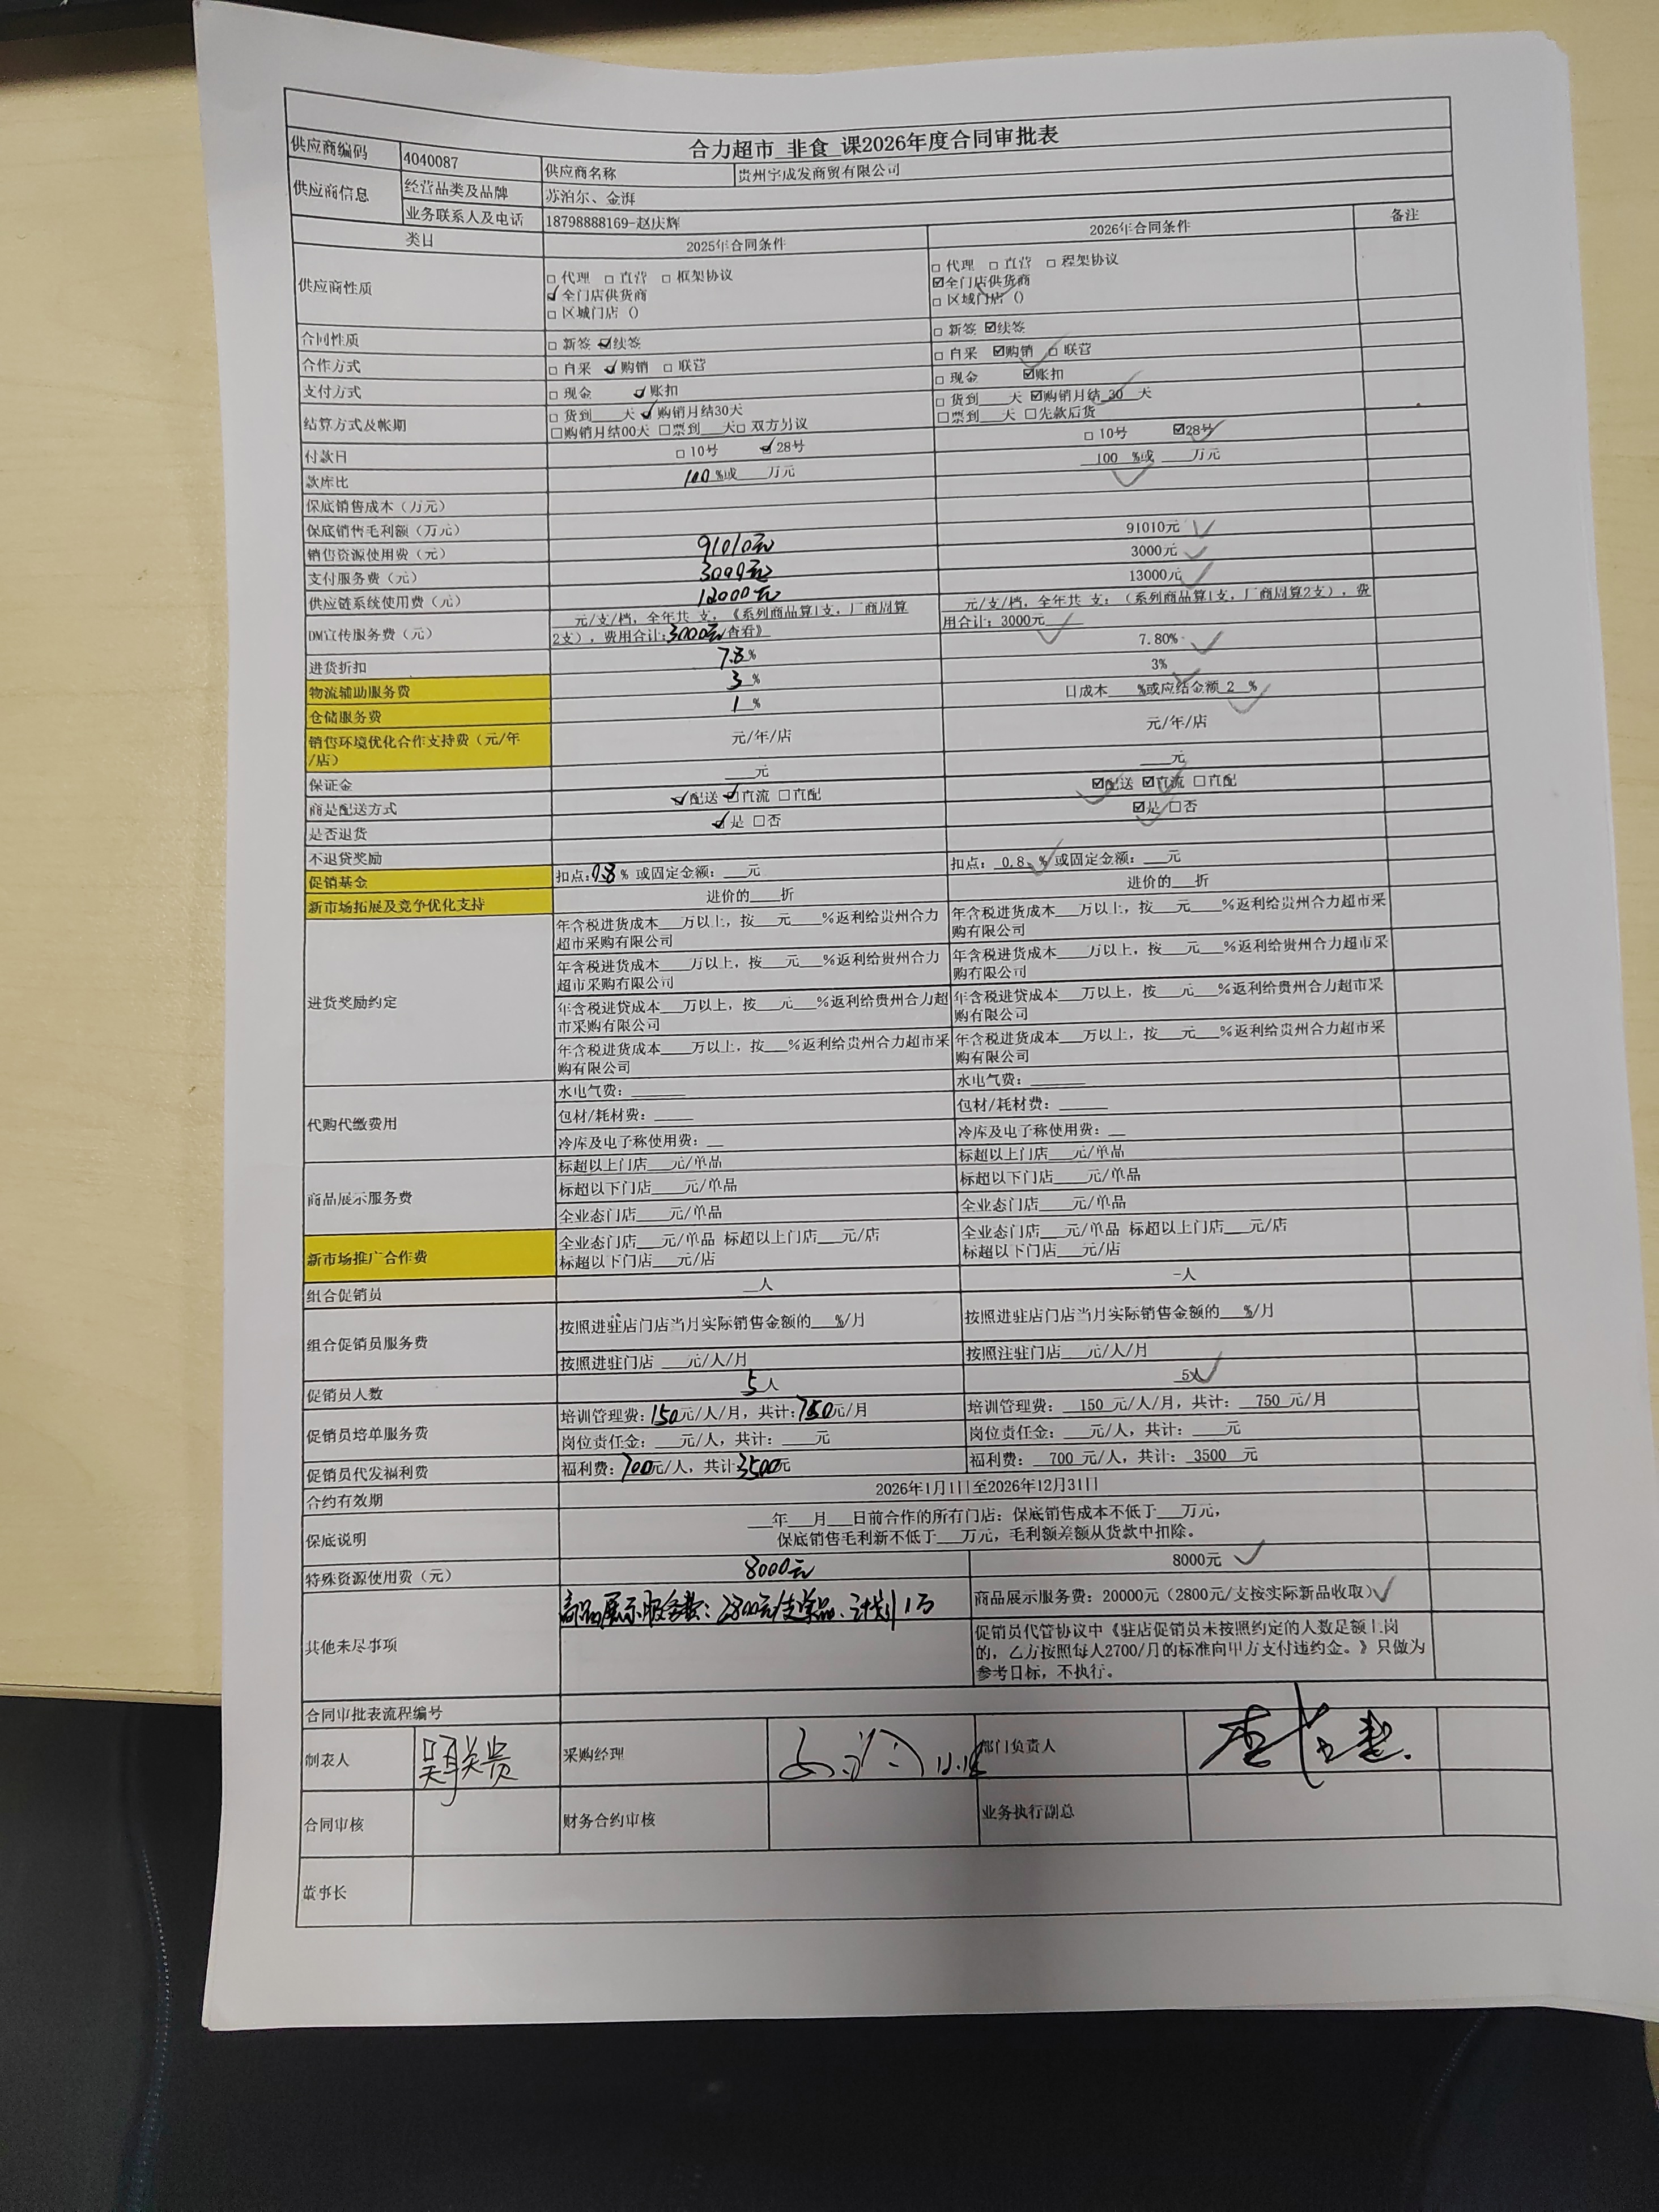 合力超市_非食_课2026年度合同审批表
供应商编码 4040087 供应商名称 贵州宇成发商贸有限公司
供应商信息 经营品类及品牌 苏泊尔、金湃
业务联系人及电话 18798888169-赵庆辉
类目 2025年合同条件 2026年合同条件 备注
供应商性质
□ 代理 □ 直营 □ 框架协议 □ 代理 □ 直营 □ 程架协议
☑全门店供货商 ☑全门店供货商
□ 区域门店 () □ 区域门店 ()
合同性质 □ 新签 ☑续签 □ 新签 ☑续签
合作方式 □ 自采 ☑购销 □ 联营 □ 自采 ☑购销 □ 联营
支付方式 □ 现金 ☑账扣 □ 现金 ☑账扣
结算方式及帐期
□ 货到___天 ☑购销月结30天 □ 货到___天 ☑购销月结_30_天
□购销月结00天 □票到___天□ 双方另议 □票到___天 □先款后货
付款日 □ 10号 ☑28号 □ 10号 ☑28号
款库比 100%或___万元 100 %或___万元
保底销售成本（万元）
保底销售毛利额（万元）
销售资源使用费（元） 91010元 91010元
支付服务费（元） 3000元 3000元
供应链系统使用费（元） 12000元 13000元
DM宣传服务费（元）
___元/支/档，全年共 支，《系列商品算1支，厂商周算2支），费用合计：3000元/查看》
___元/支/档，全年共 支；（系列商品算1支，厂商周算2支），费用合计：3000元
进货折扣 7.8% 7.80%
物流辅助服务费 3% 3%
仓储服务费 1% 口成本___%或应结金额_2_%
销售环境优化合作支持费（元/年/店） 元/年/店 元/年/店
保证金 ___元 ___元
商是配送方式 ☑配送 ☑直流 □直配 ☑配送 ☑直流 □直配
是否退货 ☑是 □否 ☑是 □否
不退贷奖励
促销基金 扣点：0.8% 或固定金额：___元 扣点：_0.8_% 或固定金额：___元
新市场拓展及竞争优化支持 进价的___折 进价的___折
进货奖励约定
年含税进货成本___万以上，按___元___%返利给贵州合力超市采购有限公司 年含税进货成本___万以上，按___元___%返利给贵州合力超市采购有限公司
年含税进货成本___万以上，按___元___%返利给贵州合力超市采购有限公司 年含税进货成本___万以上，按___元___%返利给贵州合力超市采购有限公司
年含税进贷成本___万以上，按___元___%返利给贵州合力超市采购有限公司 年含税进贷成本___万以上，按___元___%返利给贵州合力超市采购有限公司
年含税进货成本___万以上，按___%返利给贵州合力超市采购有限公司 年含税进货成本___万以上，按___元___%返利给贵州合力超市采购有限公司
代购代缴费用
水电气费：____ 水电气费：____
包材/耗材费：____ 包材/耗材费：____
冷库及电子称使用费：__ 冷库及电子称使用费：__
商品展示服务费
标超以上门店___元/单品 标超以上门店___元/单品
标超以下门店___元/单品 标超以下门店___元/单品
全业态门店___元/单品 全业态门店___元/单品
新市场推广合作费
全业态门店___元/单品 标超以上门店___元/店 全业态门店___元/单品 标超以上门店___元/店
标超以下门店___元/店 标超以下门店___元/店
组合促销员 __人 -人
组合促销员服务费
按照进驻店门店当月实际销售金额的___%/月 按照进驻店门店当月实际销售金额的___%/月
按照进驻门店 ___元/人/月 按照注驻门店___元/人/月
促销员人数 5人 5人
促销员培单服务费
培训管理费：150元/人/月，共计：750元/月 培训管理费：_150_元/人/月，共计：_750_元/月
岗位责任金：___元/人，共计：___元 岗位责任金：___元/人，共计：___元
促销员代发福利费 福利费：700元/人，共计3500元 福利费：_700_元/人，共计：_3500_元
合约有效期 2026年1月1日至2026年12月31日
保底说明
___年___月___日前合作的所有门店：保底销售成本不低于___万元，
保底销售毛利新不低于___万元，毛利额差额从货款中扣除。
特殊资源使用费（元） 8000元 8000元
其他未尽事项
商品展示服务费：2800元/支单品、计划1万 商品展示服务费：20000元（2800元/支按实际新品收取）
促销员代管协议中《驻店促销员未按照约定的人数足额上岗
的，乙方按照每人2700/月的标准向甲方支付违约金。》只做为
参考目标，不执行。
合同审批表流程编号
制表人 采购经理 部门负责人
合同审核 财务合约审核 业务执行副总
董事长